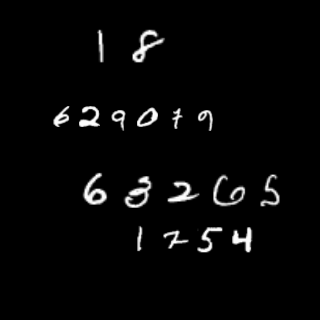 18
629079
63265
1754